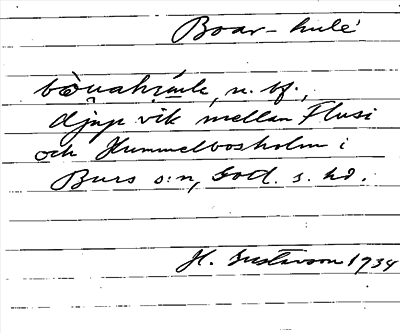 Boar-hule
n. bf.,
djup vik mellan Flusi
och Hummelbosholm i
Burs s:n, Got. s. hd.
H. Gustavson 1934